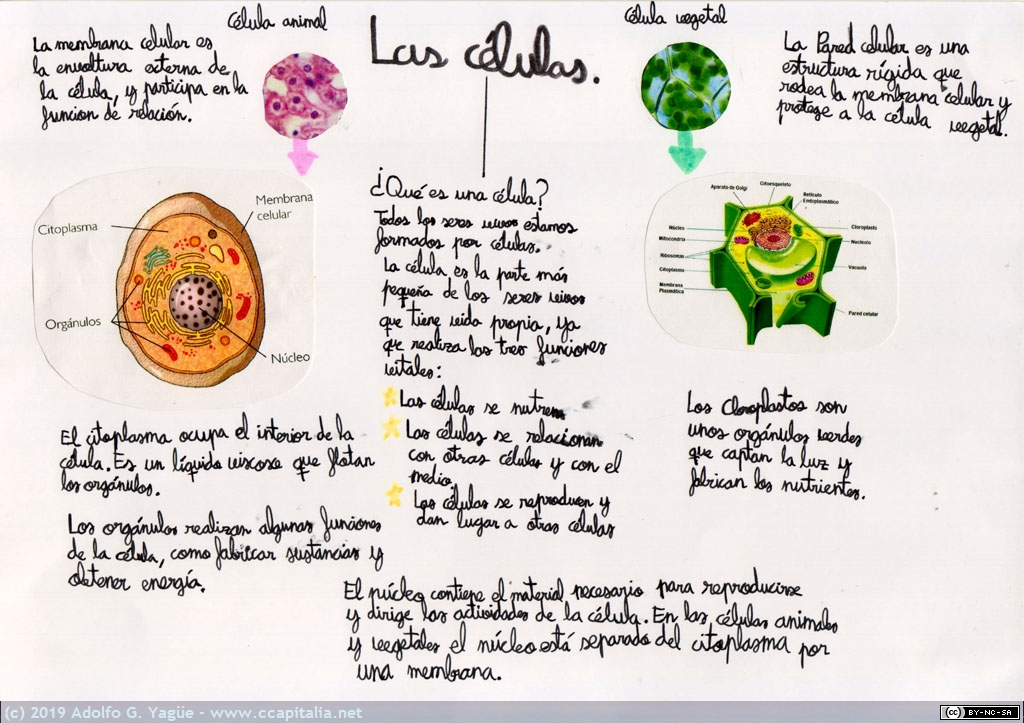 Célula animal
Las células.
Célula vegetal
La membrana celular es
la envoltura externa de
la célula, y participa en la
funcion de relación.
La Pared celular es una
estructura rígida que
rodea la membrana celular y
protege a la célula vegetal.
Citoplasma
Membrana
celular
Orgánulos
Núcleo
¿Qué es una célula?
Todos los seres vivos estamos
formados por células.
La célula es la parte más
pequeña de los seres vivos
que tiene vida propia, ya
que realiza las tres funciones
vitales:
Las células se nutren
Las células se relacionan
con otras células y con el
medio.
Las células se reproducen y
dan lugar a otras células
Aparato de Golgi
Citoesqueleto
Retículo
Endoplasmático
Núcleo
Mitocondria
Ribosomas
Citoplasma
Membrana
Plasmática
Cloroplasto
Nucleolo
Vacuola
Pared celular
El citoplasma ocupa el interior de la
célula. Es un líquido viscoso que flotan
los orgánulos.
Los orgánulos realizan algunas funciones
de la célula, como fabricar sustancias y
obtener energía.
Los Cloroplastos son
unos orgánulos verdes
que captan la luz y
fabrican los nutrientes.
El núcleo contiene el material necesario para reproducirse
y dirige las actividades de la célula. En las células animales
y vegetales el núcleo está separado del citoplasma por
una membrana.
(c) 2019 Adolfo G. Yagüe - www.ccapitalia.net
cc BY-NC-SA